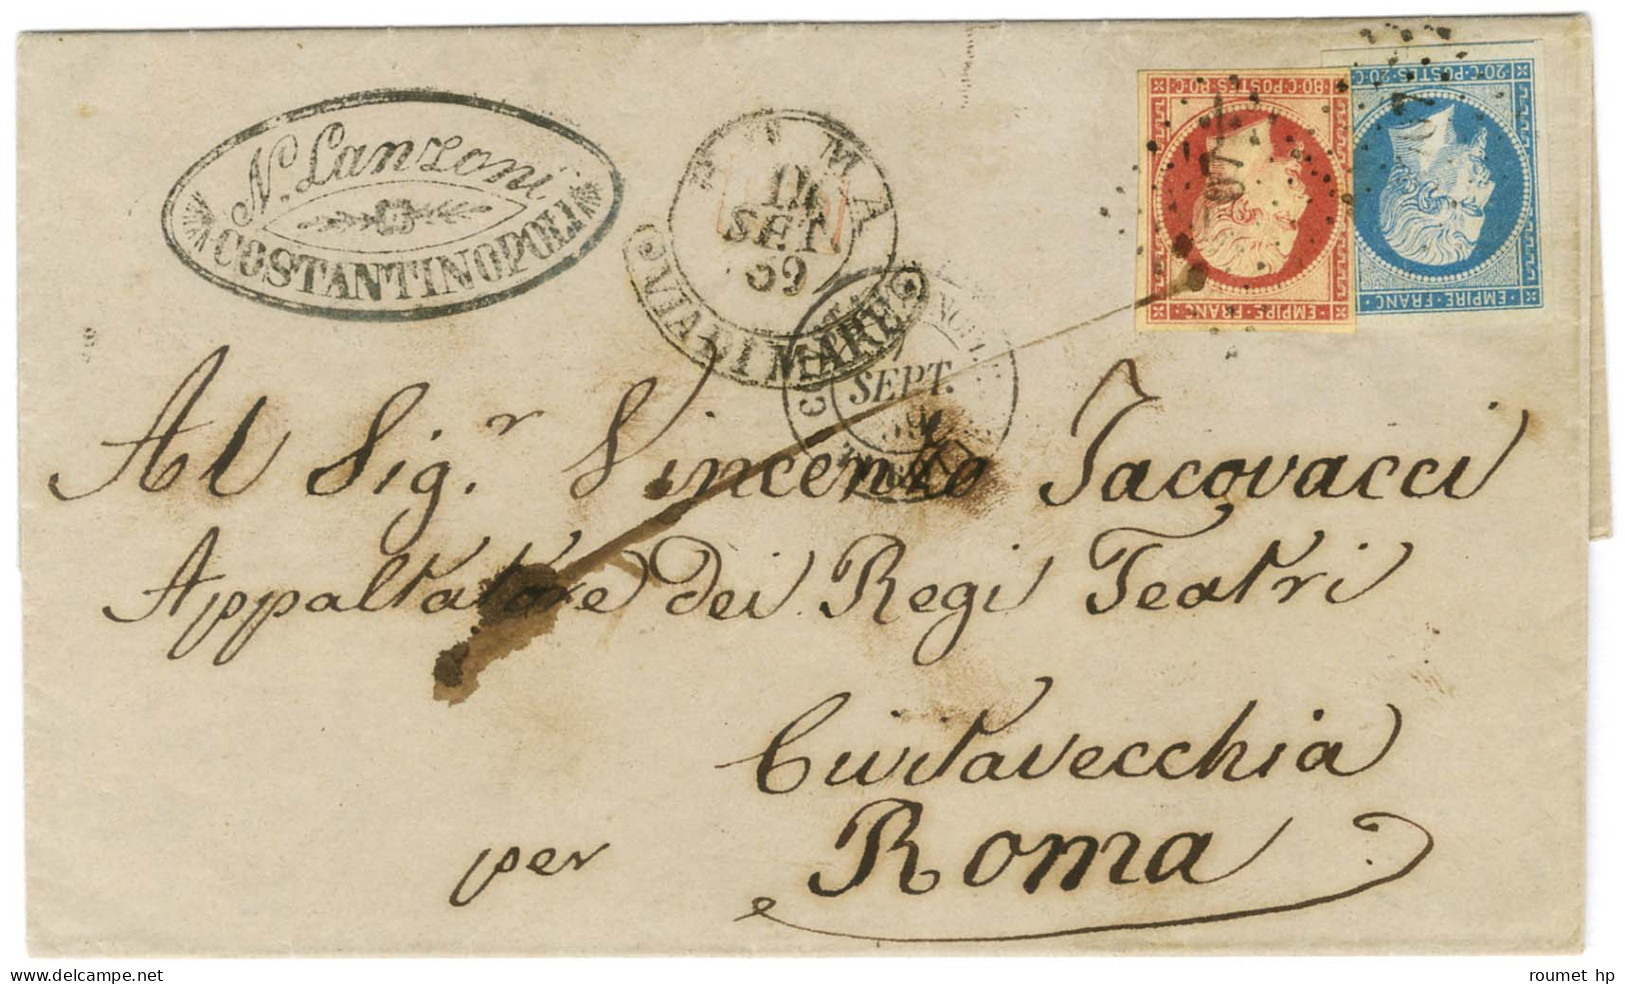 N. Lanzoni
COSTANTINOPOLI
ROMA
SET.
59
VIA DI MARE
SEPT.
80·C·POSTES·80·C
EMPIRE·FRANC
20·C·POSTES·20·C
EMPIRE·FRANC
Al Sig.r Vincenzo Jacovacci
Appaltatore dei Regi Teatri
Civitavecchia
per Roma
roumet hp